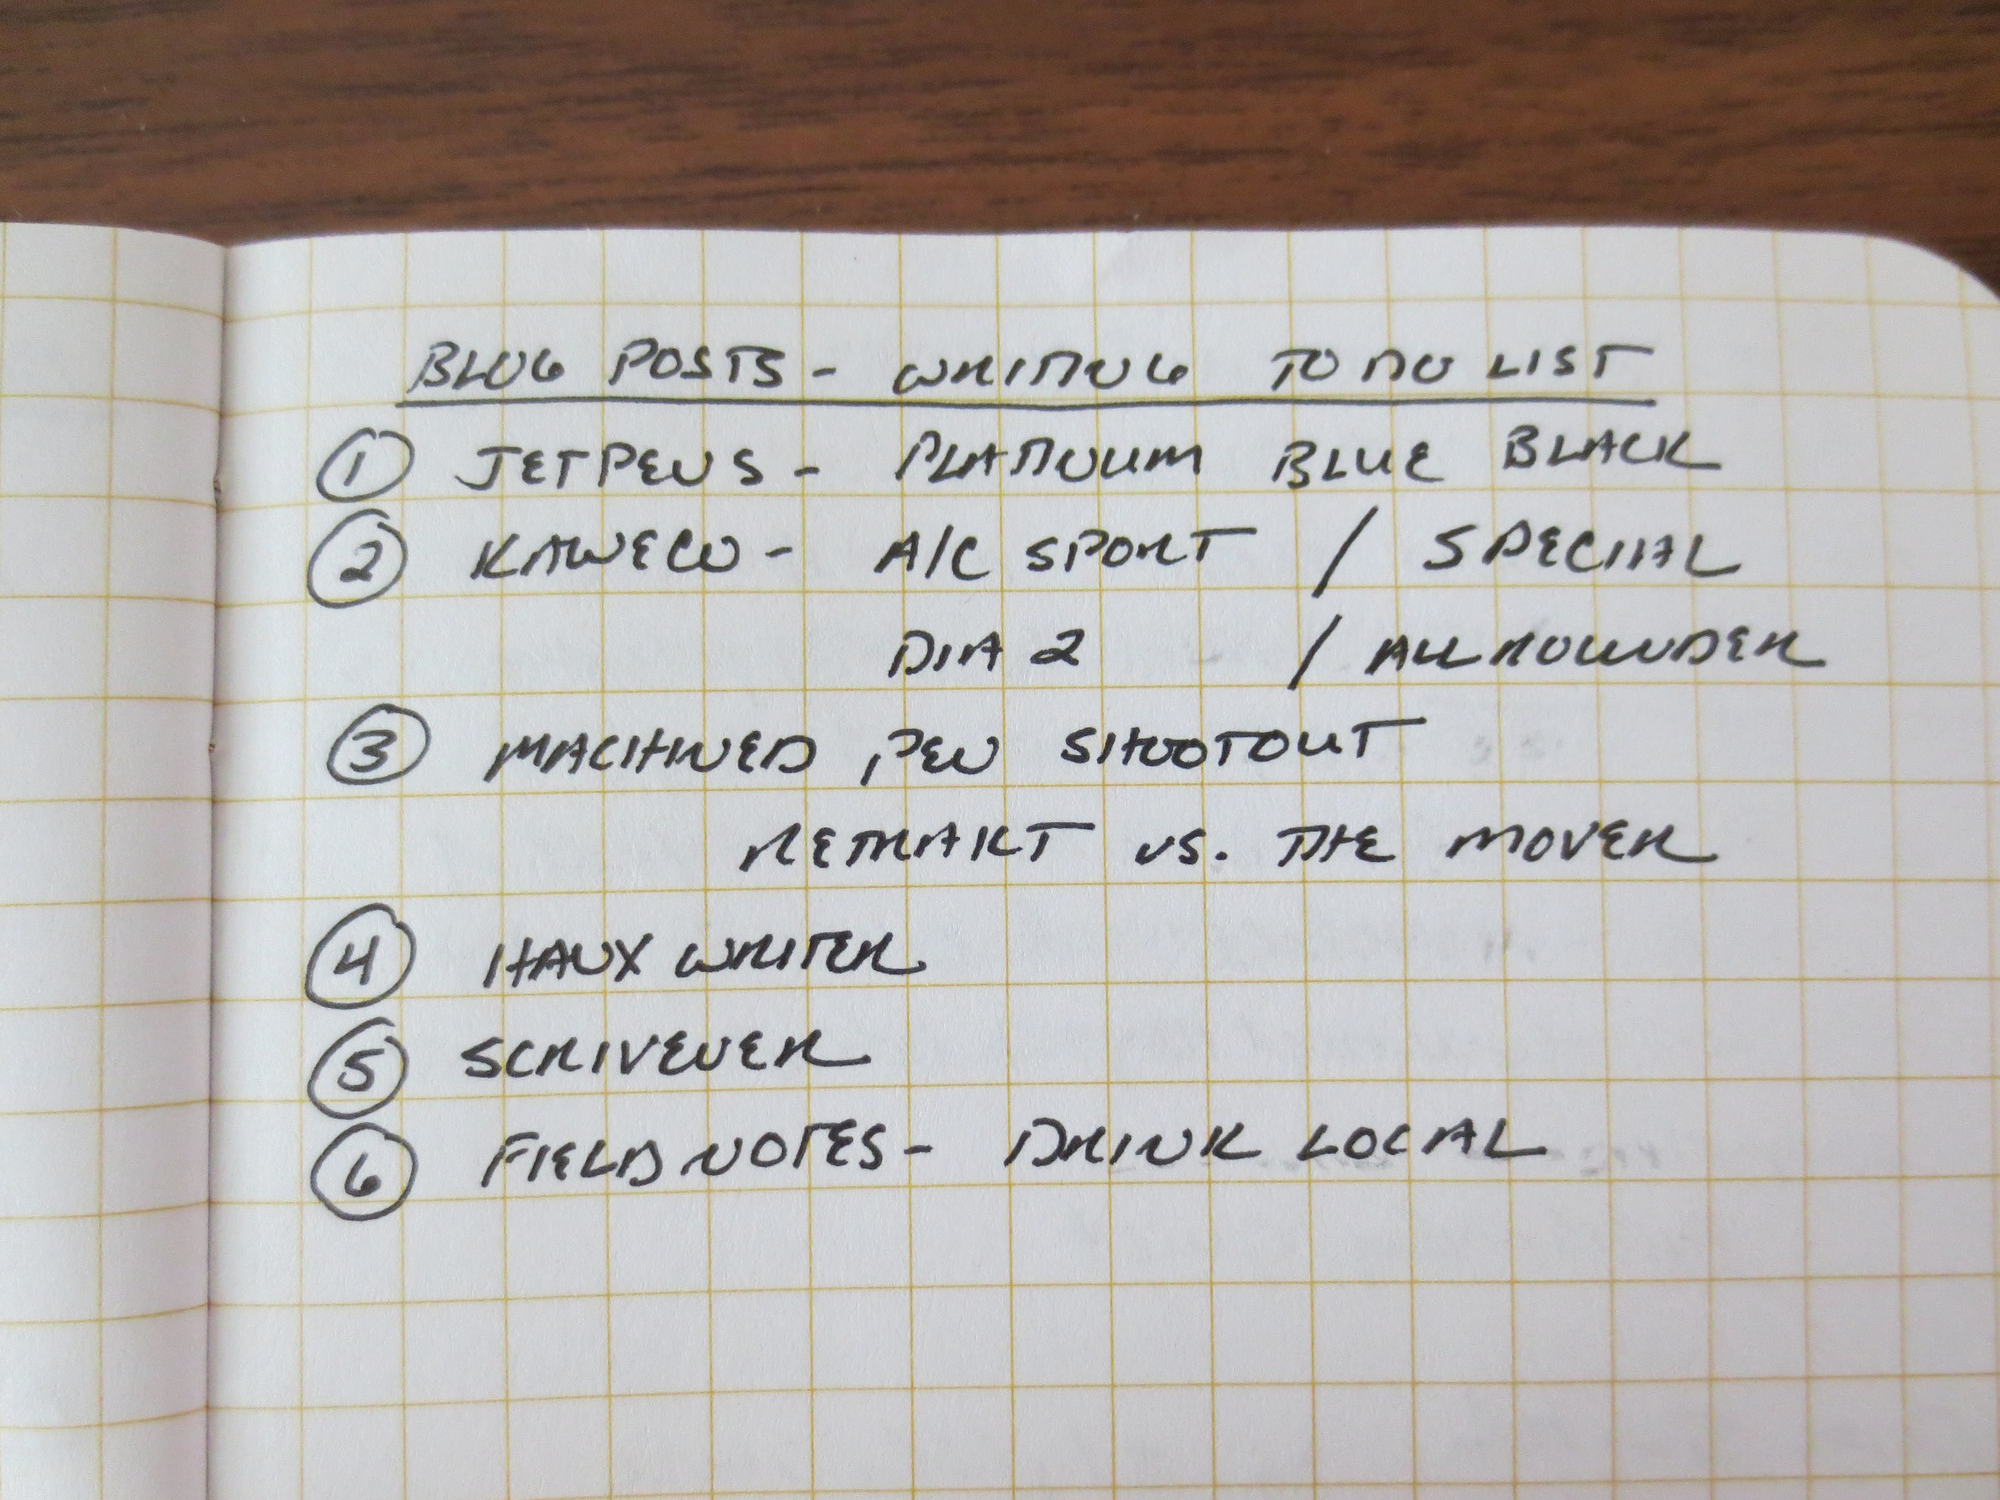 BLOG POSTS - WRITING TO DO LIST
① JETPENS - PLATINUM BLUE BLACK
② KAWECO - A/C SPORT / SPECIAL
DIA 2 / ALLROUNDER
③ MACHINED PEN SHOOTOUT
RETRAKT VS. THE MOVER
④ HANX WRITER
⑤ SCRIVENER
⑥ FIELD NOTES - DRINK LOCAL